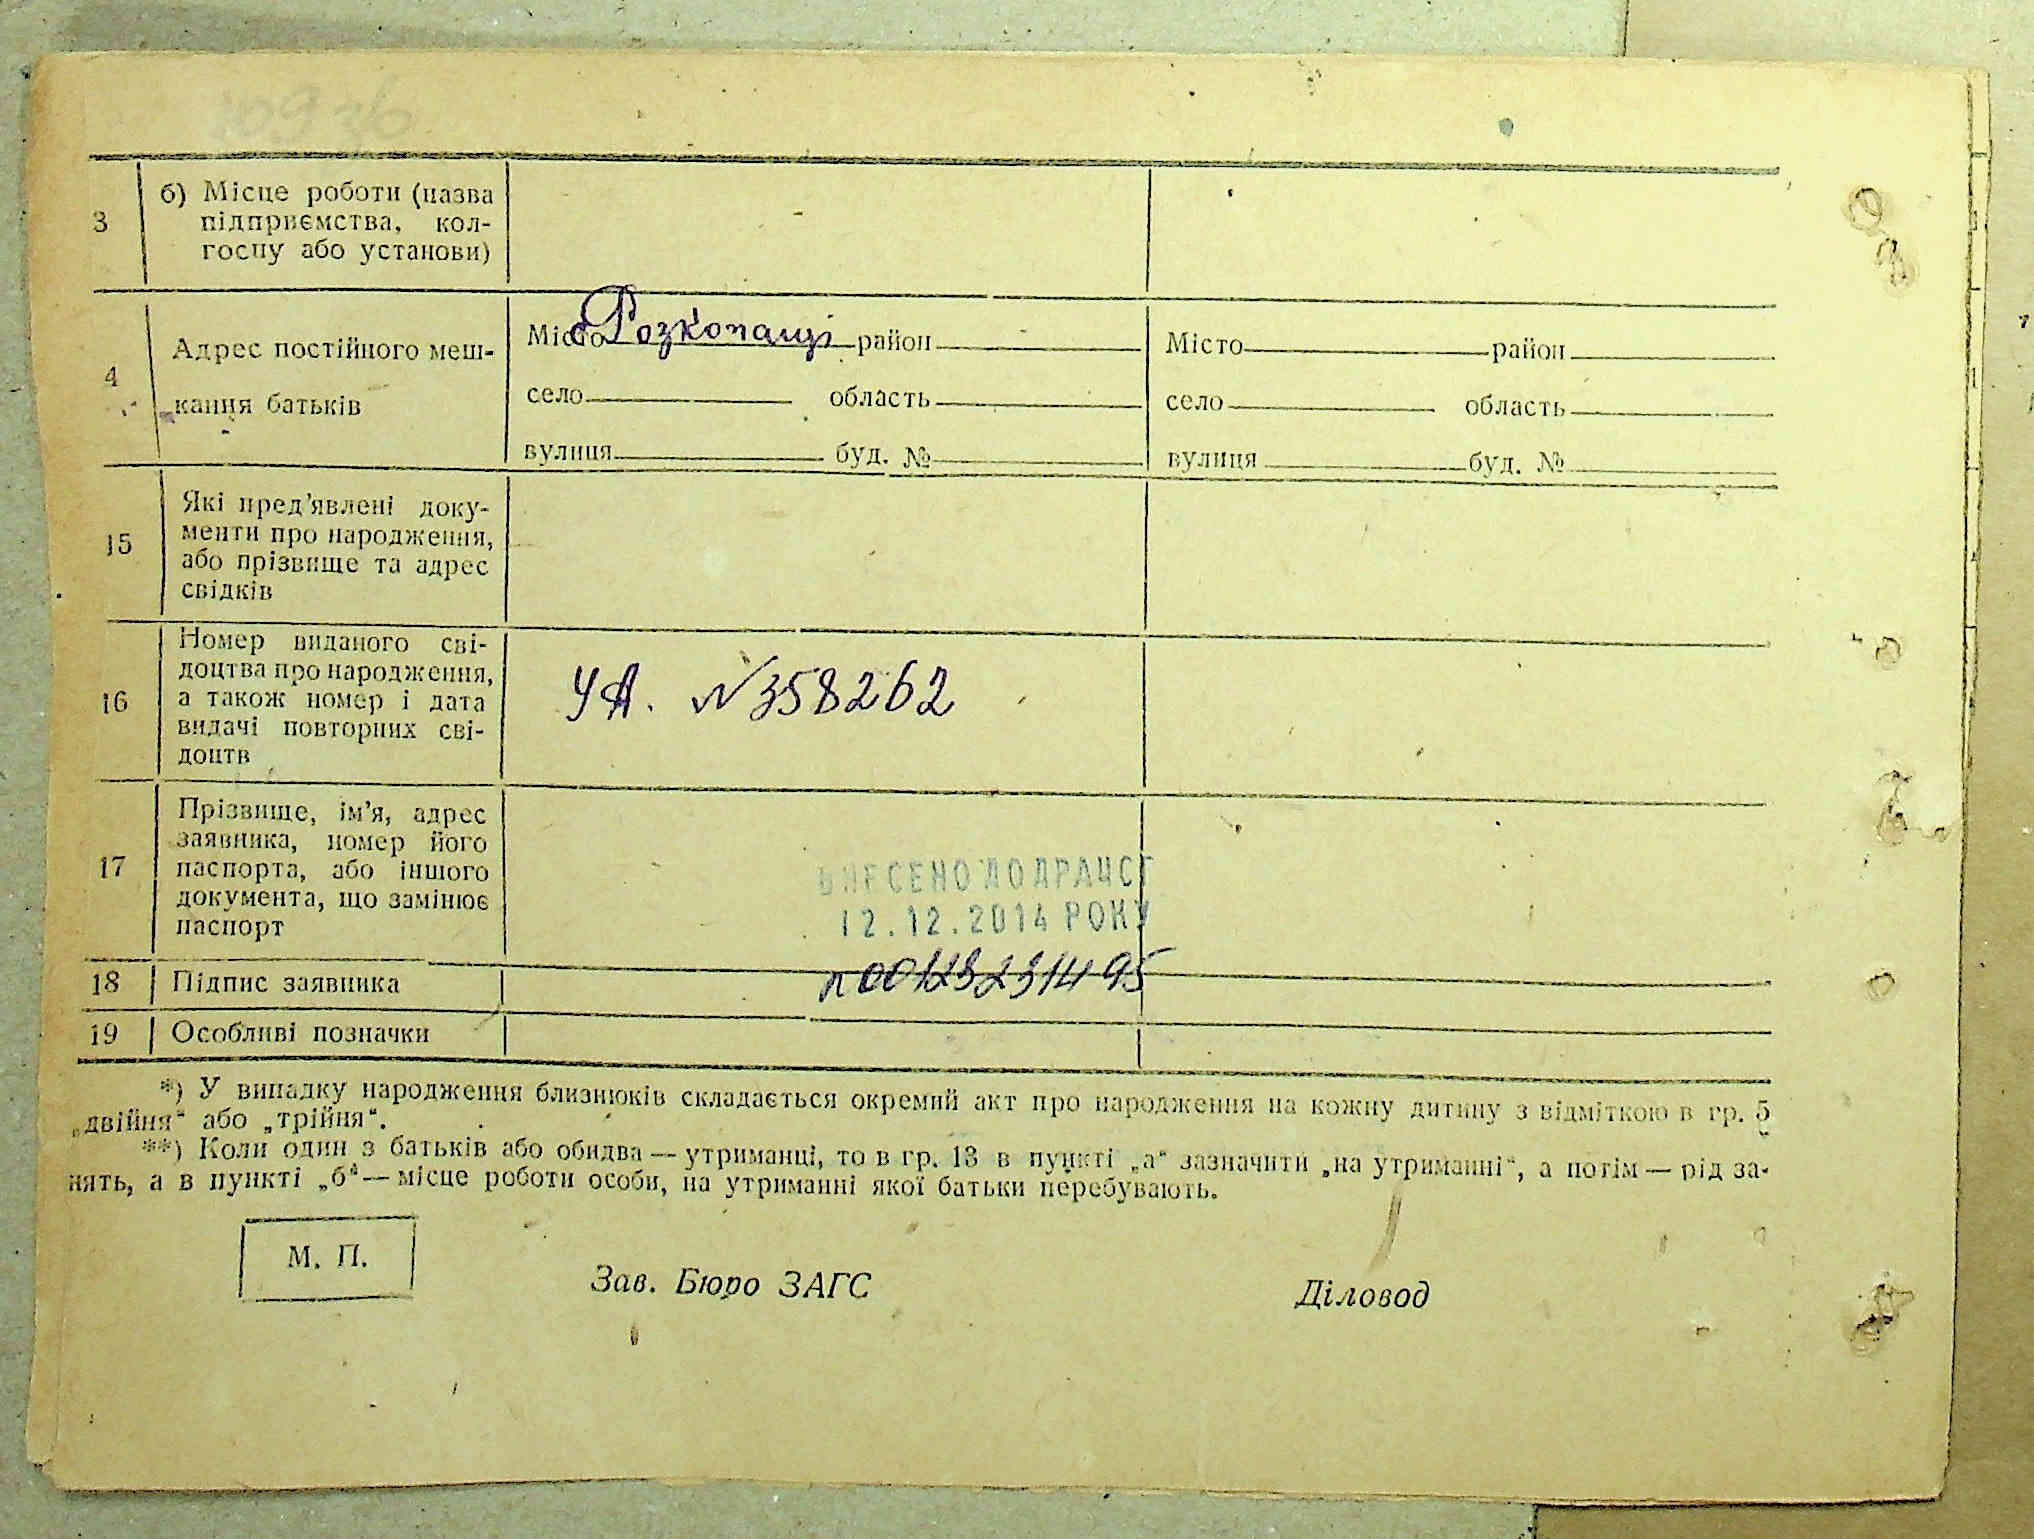 3 б) Місце роботи (назва
підприємства, кол-
госпу або установи)
4 Адрес постійного меш-
кання батьків
Місто Розкопанці район
село область
вулиця буд. №
Місто район
село область
вулиця буд. №
15 Які пред’явлені доку-
менти про народження,
або прізвище та адрес
свідків
16 Номер виданого сві-
доцтва про народження,
а також номер і дата
видачі повторних сві-
доцтв
УА. №358262
17 Прізвище, ім’я, адрес
заявника, номер його
паспорта, або іншого
документа, що замінює
паспорт
ВНЕСЕНО ДО ДРАЦСГ
12.12.2014 РОКУ
18 Підпис заявника
19 Особливі позначки
*) У випадку народження близнюків складається окремий акт про народження на кожну дитину з відміткою в гр. 5
„двійня“ або „трійня“.
**) Коли один з батьків або обидва — утриманці, то в гр. 13 в пункті „а“ зазначити „на утриманні“, а потім — рід за-
нять, а в пункті „б“ — місце роботи особи, на утриманні якої батьки перебувають.
М. П.
Зав. Бюро ЗАГС
Діловод